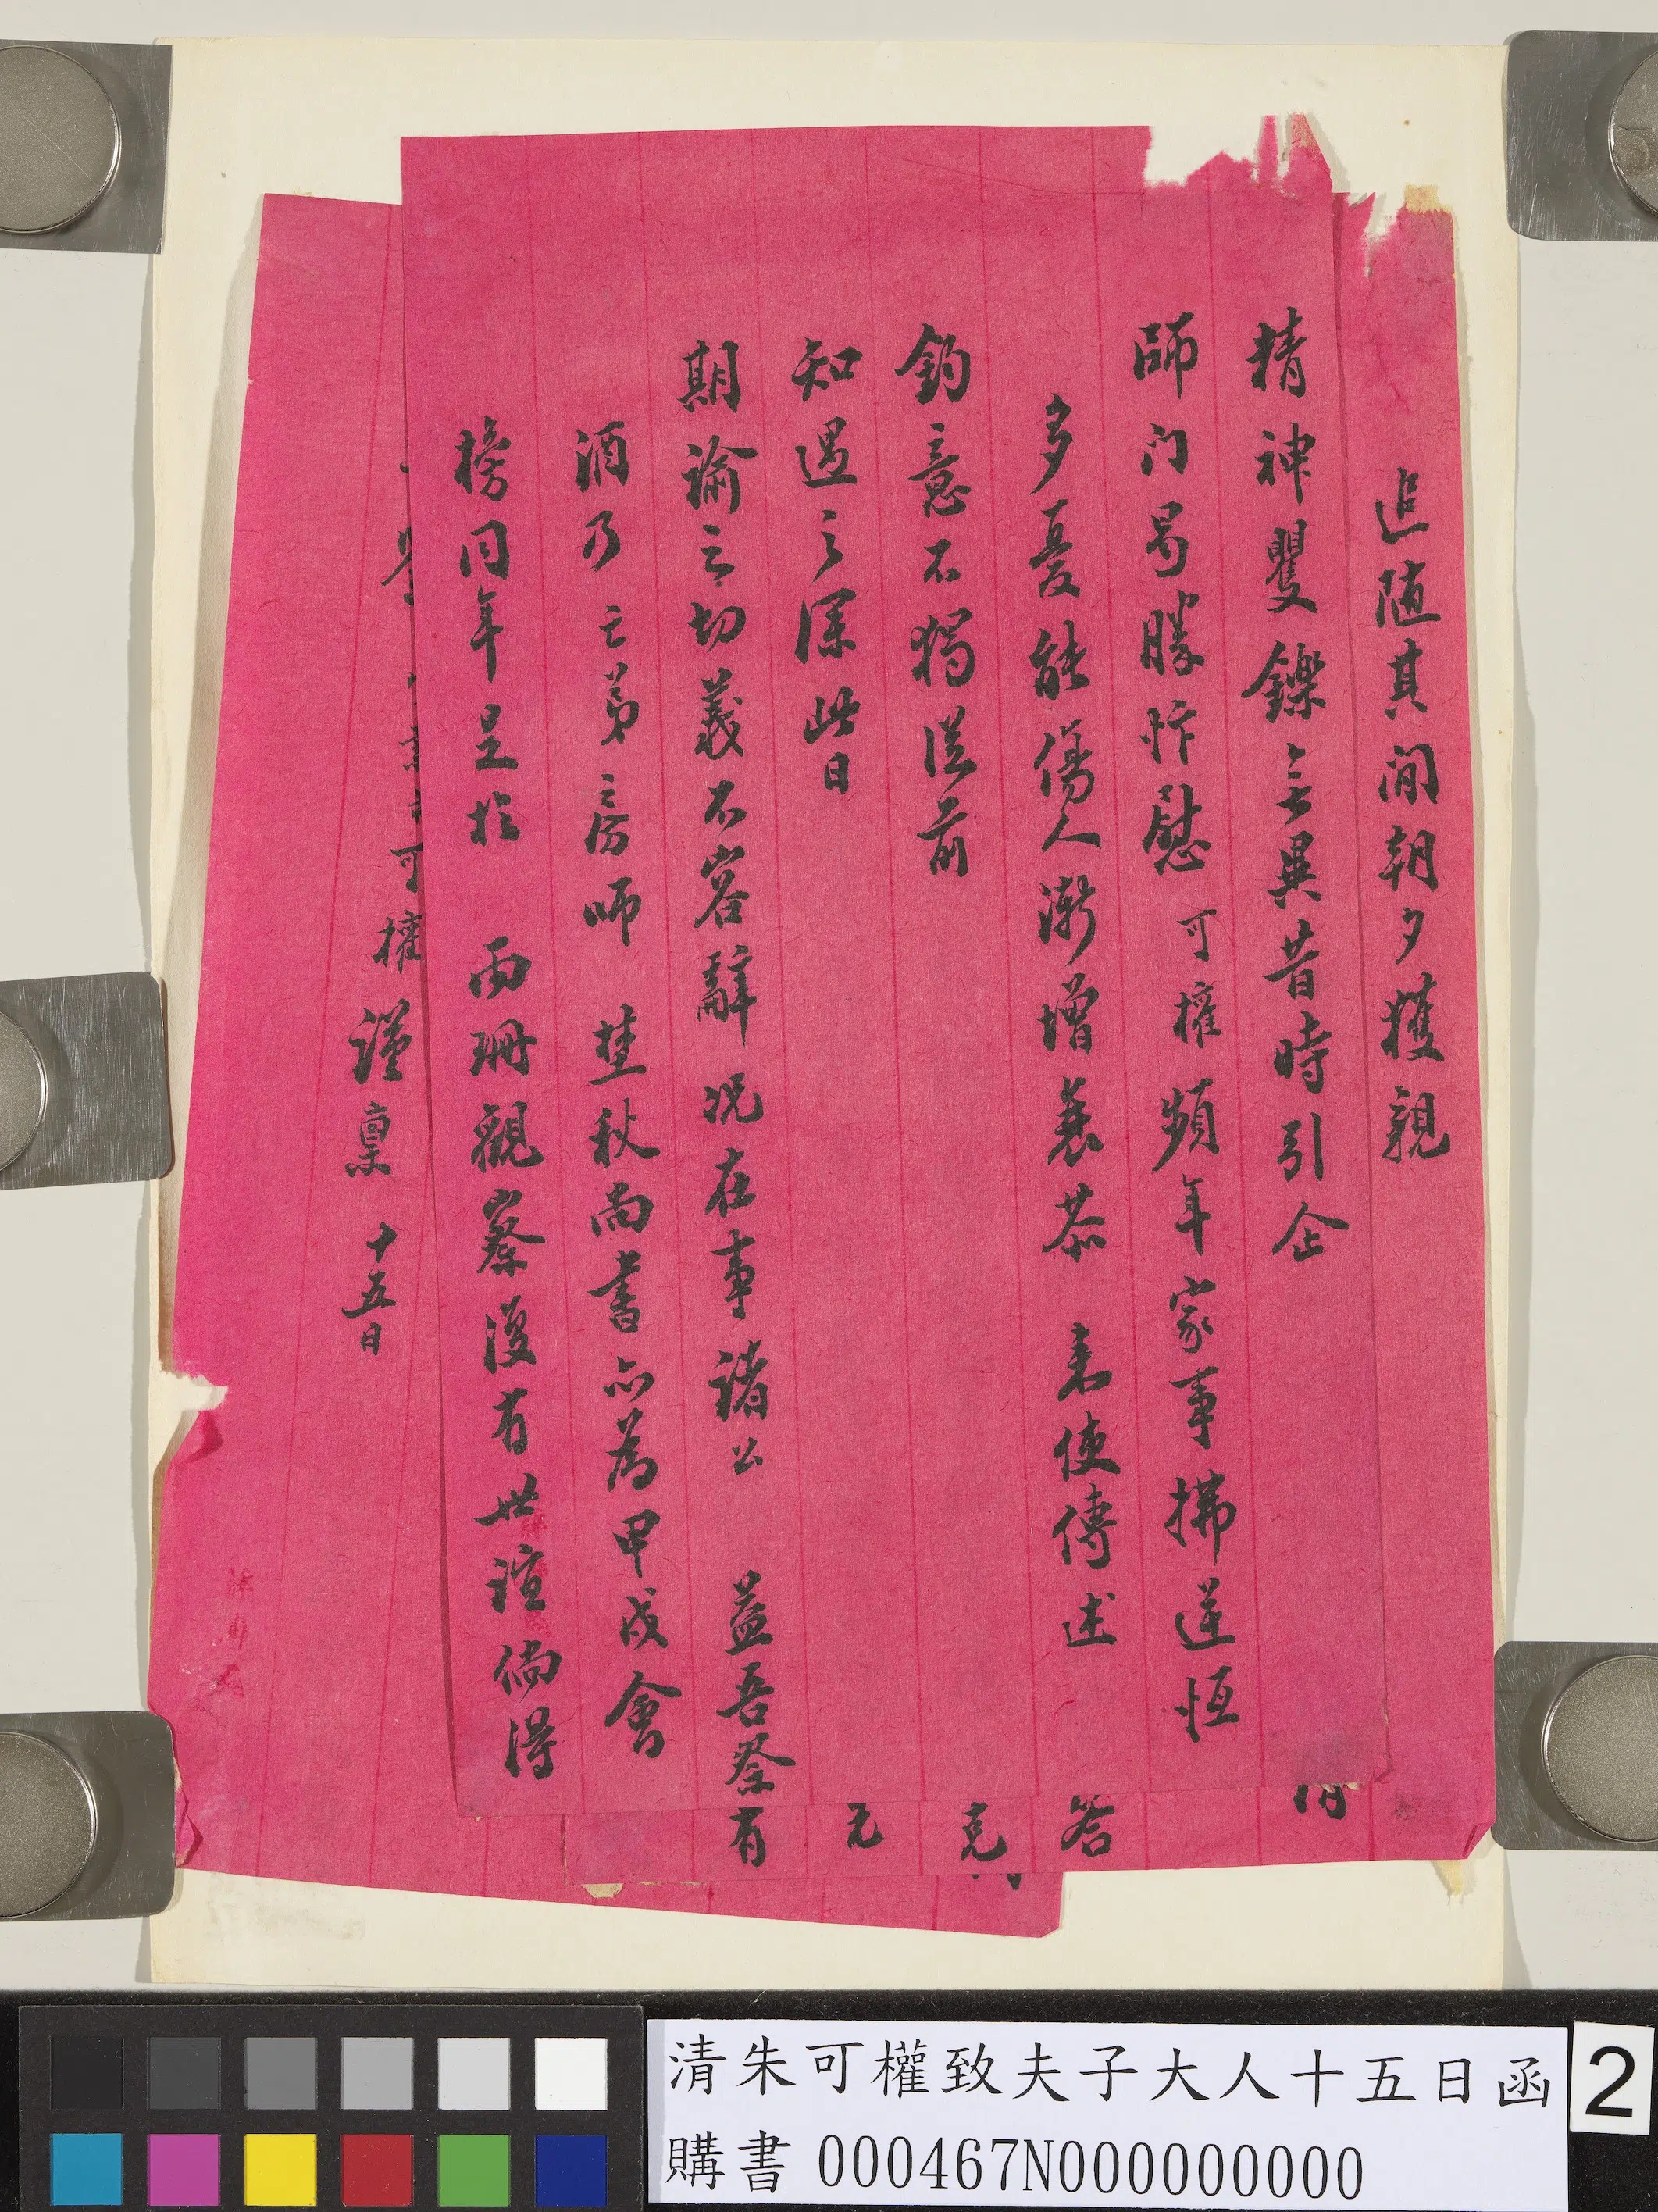 追隨其間朝夕獲親
精神矍鑠無異昔時引企
師門曷勝忭慰可權頻年家事拂逆恒
多憂能傷人漸增衰恭 袁使傳述
鈞意不獨從前
知遇之深此日
期諭之切義不容辭況在事諸公 益吾祭有
酒乃亡弟之房師 塋秋尚書亦為甲戌會
榜同年呈於 雨珊觀察復有世誼倘得
可權謹稟 十五日
答
克
元
清朱可權致夫子大人十五日函
2
購書 000467N000000000